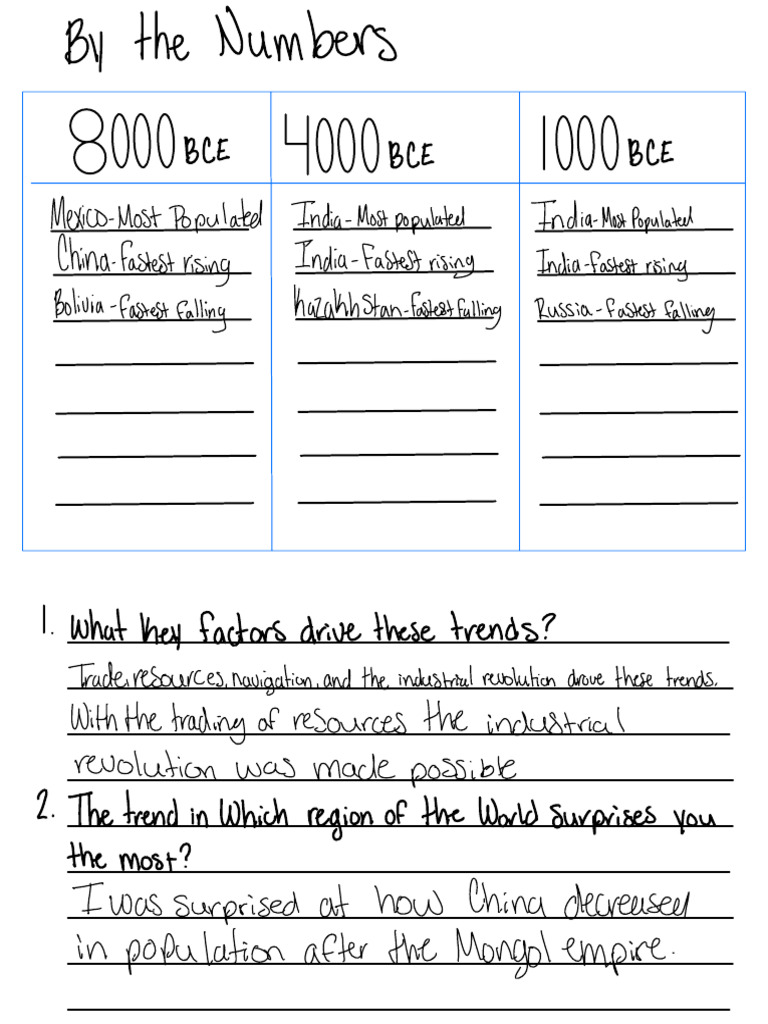 By the Numbers
8000 BCE
Mexico-Most Populated
China-Fastest rising
Bolivia-Fastest falling
4000 BCE
India-Most populated
India-Fastest rising
Kazakhstan-fastest falling
1000 BCE
India-Most Populated
India-fastest rising
Russia-fastest falling
1. What key factors drive these trends?
Trade, resources, navigation, and the industrial revolution drove these trends.
With the trading of resources the industrial
revolution was made possible
2. The trend in Which region of the World surprises you
the most?
I was surprised at how China decreased
in population after the Mongol empire.